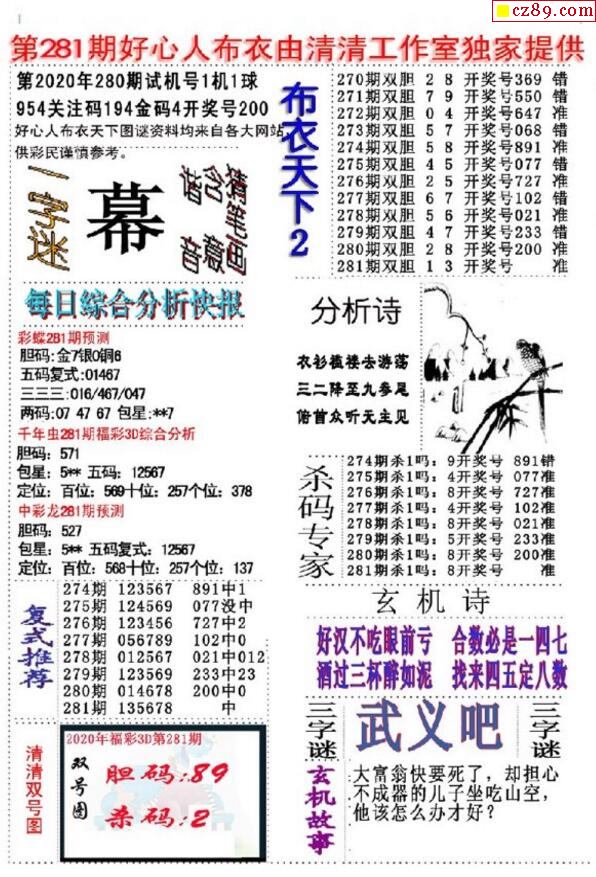 cz89.com
第281期好心人布衣由清清工作室独家提供
第2020年280期试机号1机1球
954关注码194金码4开奖号200
好心人布衣天下图谜资料均来自各大网站,
供彩民谨慎参考。
一字谜
幕
猜笔画
含意
谐音
每日综合分析快报
彩蝶281期预测
胆码:金7银0铜6
五码复式:01467
三三三:016/467/047
两码:07 47 67 包星:**7
千年虫281期福彩3D综合分析
胆码: 571
包星: 5** 五码: 12567
定位: 百位: 569十位: 257个位: 378
中彩龙281期预测
胆码: 527
包星: 5** 五码复式: 12567
定位: 百位: 568十位: 257个位: 137
复式推荐
274期 123567 891中1
275期 124569 077没中
276期 123456 727中2
277期 056789 102中0
278期 012567 021中012
279期 123569 233中23
280期 014678 200中0
281期 135678 中
清清双号图
2020年福彩3D第281期
双号图
胆码:89
杀码:2
布衣天下2
270期双胆 2 8 开奖号369 错
271期双胆 7 9 开奖号550 错
272期双胆 0 4 开奖号647 准
273期双胆 5 7 开奖号068 错
274期双胆 5 8 开奖号891 准
275期双胆 4 5 开奖号077 错
276期双胆 2 5 开奖号727 准
277期双胆 6 7 开奖号102 错
278期双胆 5 6 开奖号021 准
279期双胆 4 7 开奖号233 错
280期双胆 2 8 开奖号200 准
281期双胆 1 3 开奖号 准
分析诗
衣衫褴褛去游荡
三二降至九参尾
俯首众听无主见
杀码专家
274期杀1吗: 9开奖号 891错
275期杀1吗: 4开奖号 077准
276期杀1吗: 8开奖号 727准
277期杀1吗: 4开奖号 102准
278期杀1吗: 8开奖号 021准
279期杀1吗: 5开奖号 233准
280期杀1吗: 8开奖号 200准
281期杀1吗: 8开奖号 准
玄机诗
好汉不吃眼前亏 合数必是一四七
酒过三杯醉如泥 找来四五定八数
三字谜
武义吧
三字谜
玄机故事
大富翁快要死了，却担心
不成器的儿子坐吃山空，
他该怎么办才好?